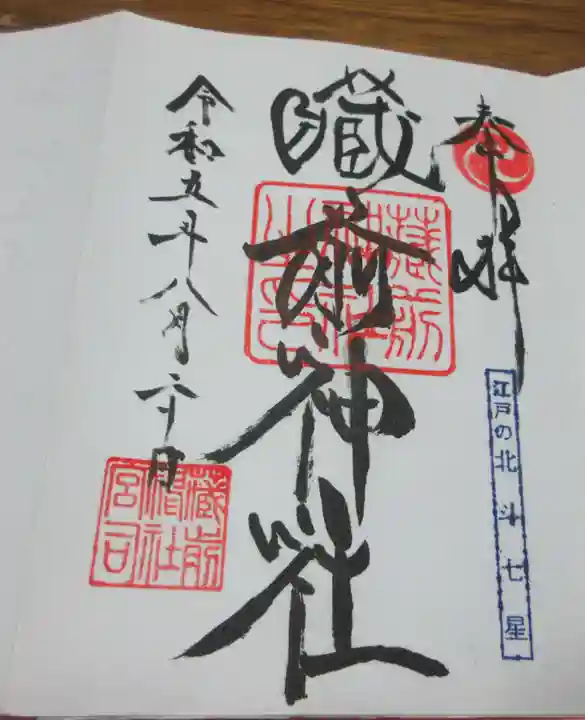 奉拝
江戸の北斗七星
蔵前神社
蔵前神社之印
令和五年八月二十日
蔵前神社宮司